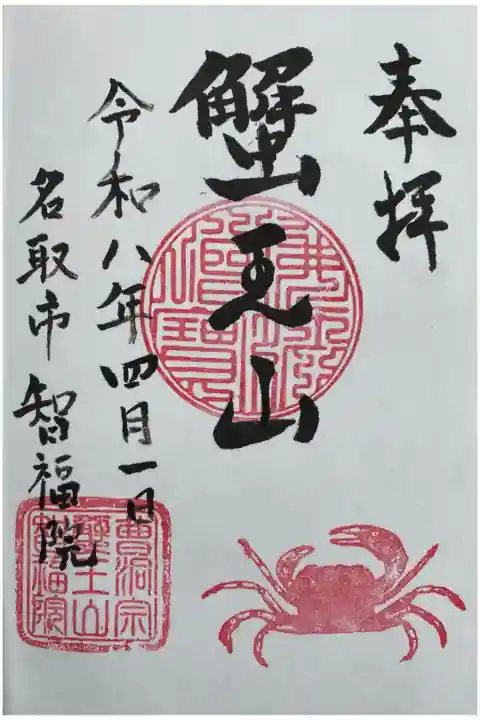 奉拝
蟹王山
令和八年四月一日
名取市 智福院
曹洞宗
蟹王山
智福院